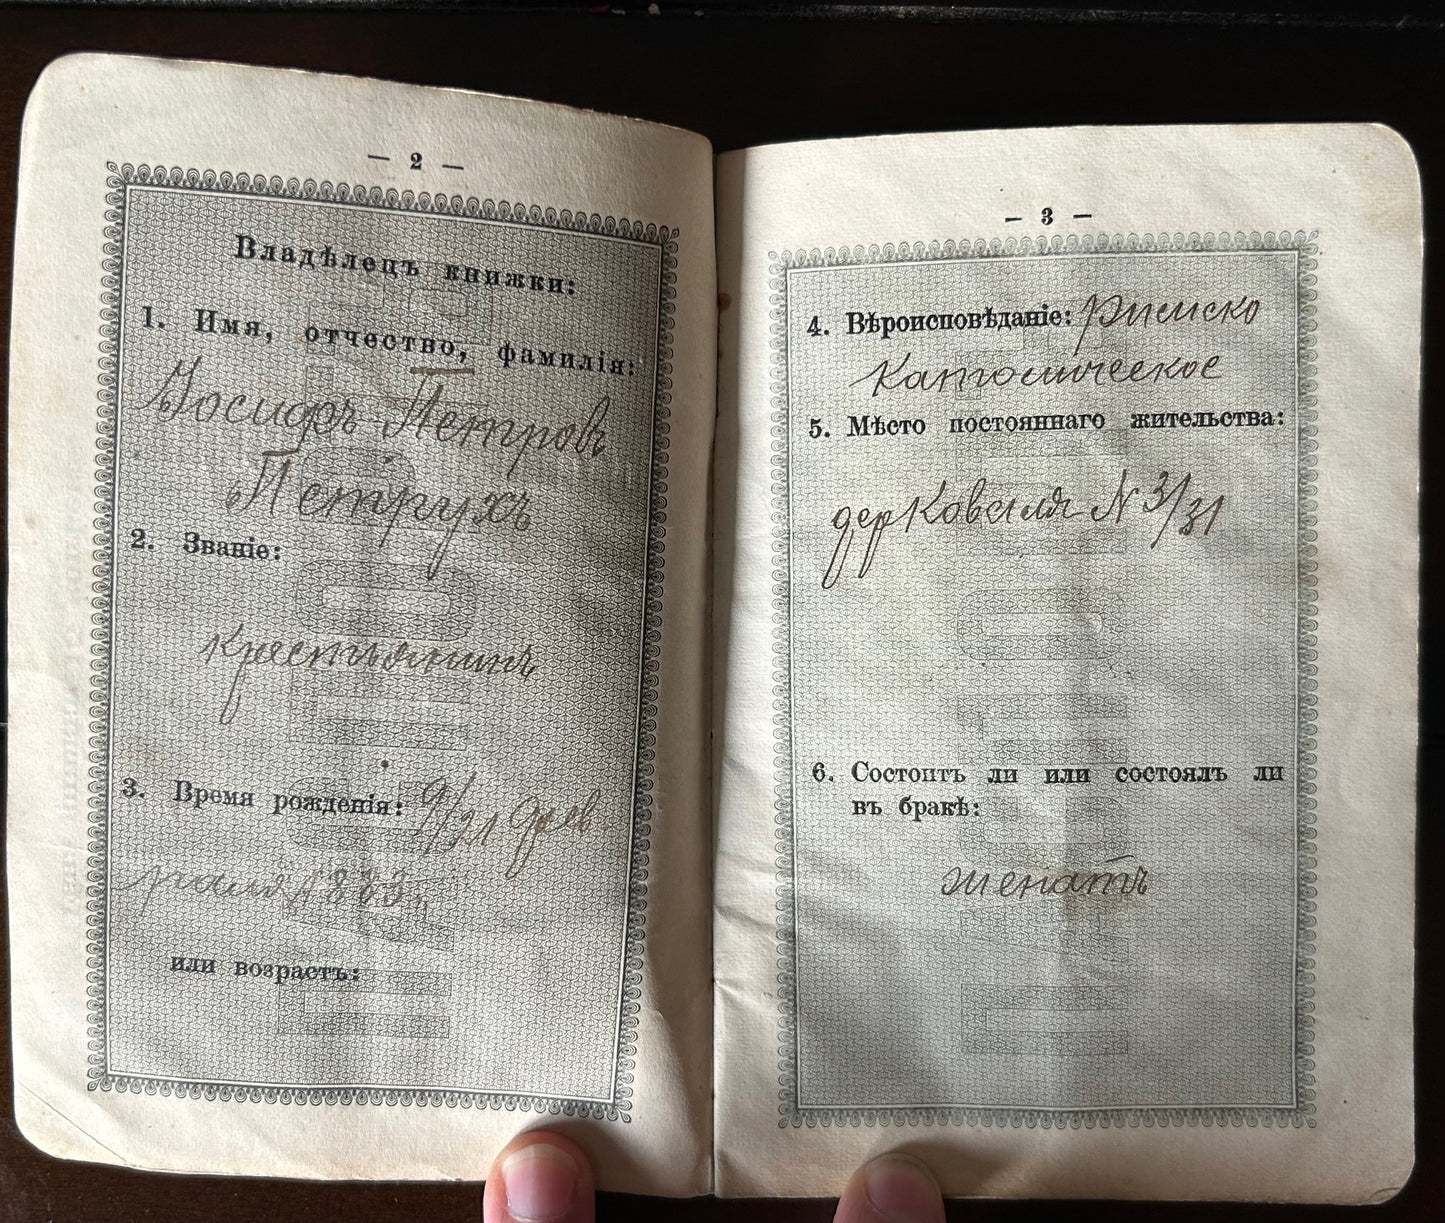 — 2 —
Владѣлецъ книжки:
1. Имя, отчество, фамилія:
Іосифъ Петровъ
Петрухъ
2. Званіе:
Крестьянинъ
3. Время рожденія: 9/21 фев
раля 1883 г.
или возрастъ:
— 3 —
4. Вѣроисповѣданіе: Римско
Католическое
5. Мѣсто постояннаго жительства:
дер Ковалля N 3/31
6. Состоитъ ли или состоялъ ли
въ бракѣ:
женатъ